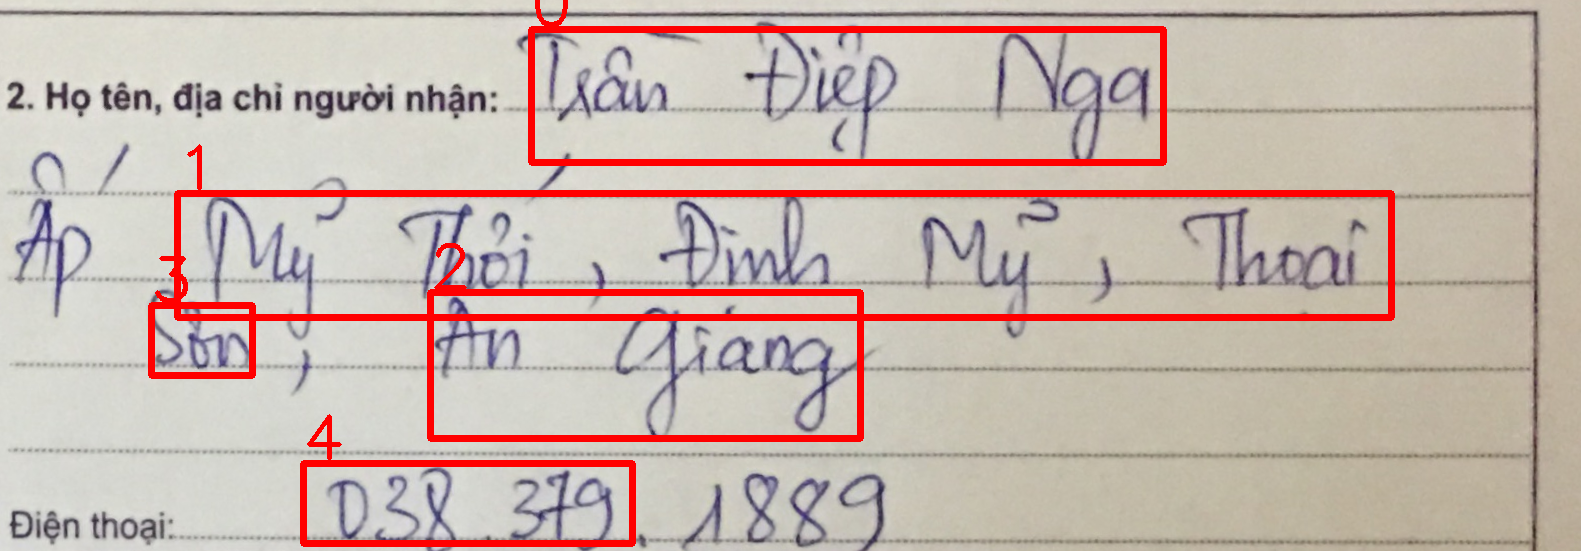 2. Họ tên, địa chỉ người nhận: Trần Điệp Nga
Ấp Mỹ Thới, Định Mỹ, Thoại
Sơn, An Giang
Điện thoại: 038.379.1889
0
1
2
3
4